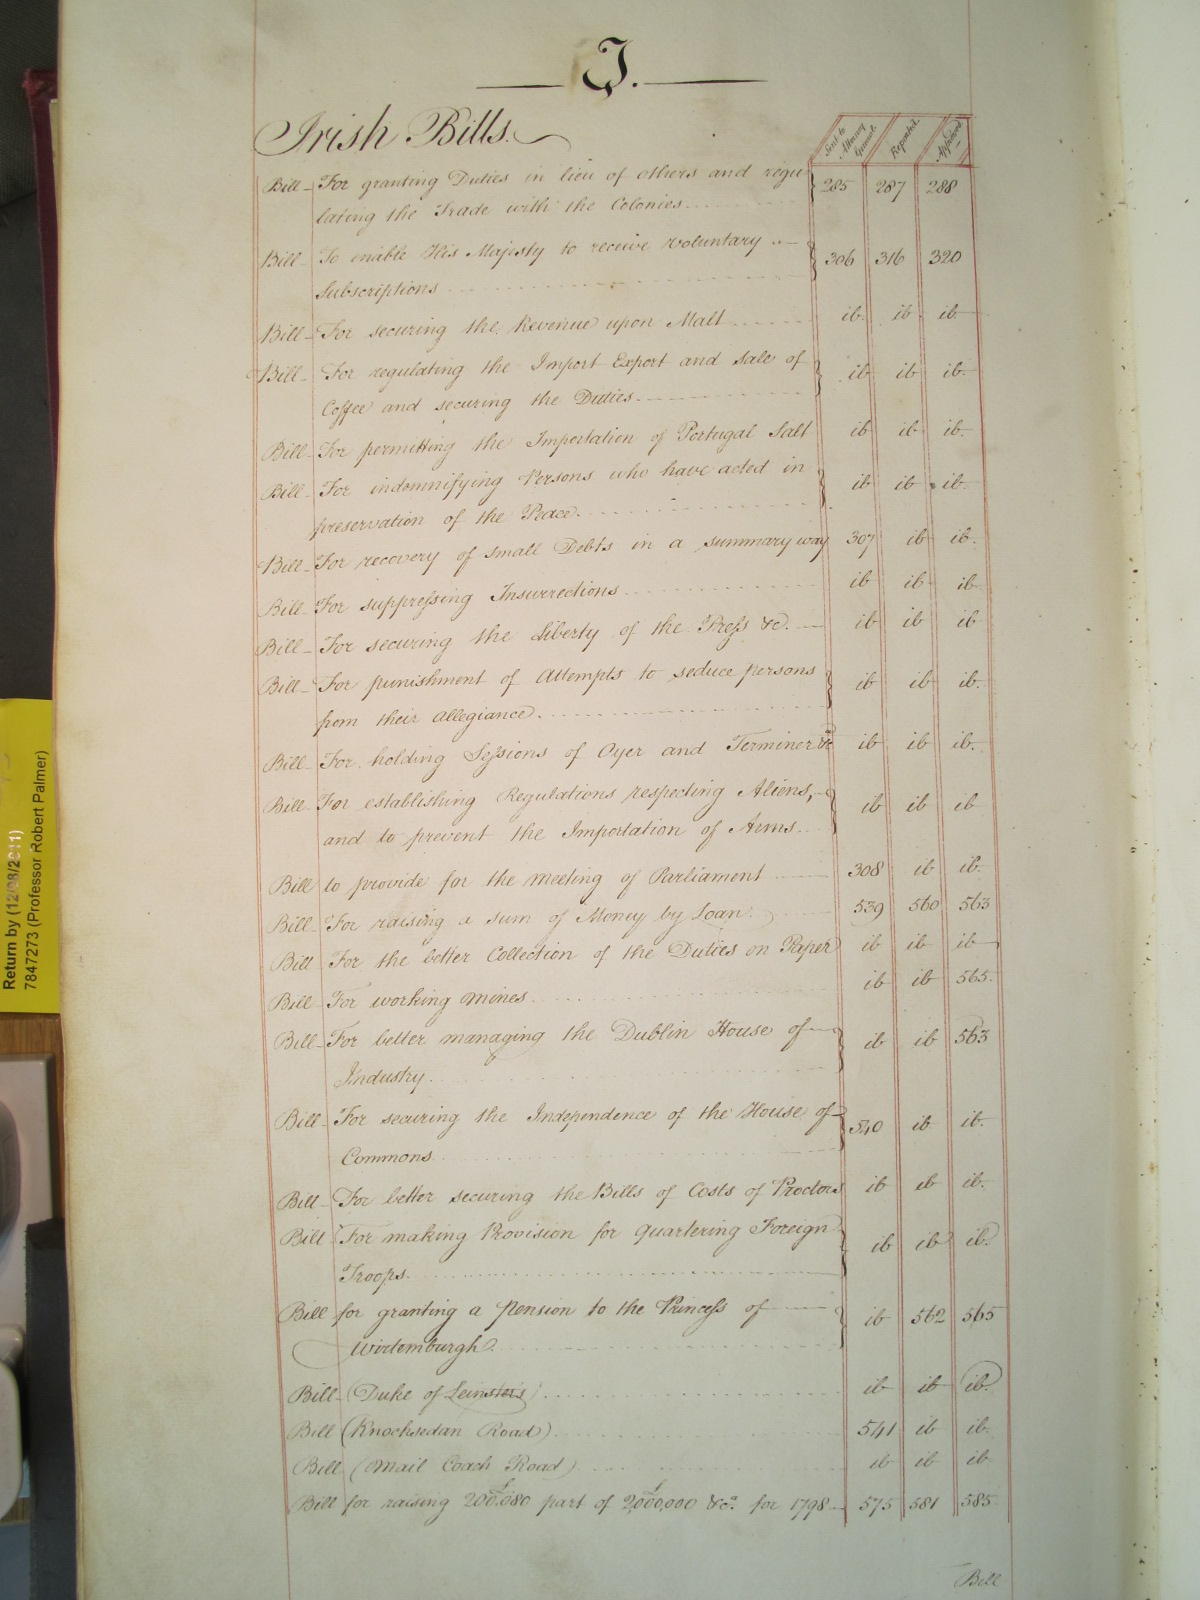 I.
Irish Bills.
Sent to Attorney General. Reported. Approved
Bill For granting Duties in lieu of others and regu 285 287 288
lating the Trade with the Colonies
Bill To enable His Majesty to receive voluntary 306 316 320
Subscriptions
Bill For securing the Revenue upon Malt ib. ib ib
Bill For regulating the Import Export and Sale of ib ib ib.
Coffee and securing the Duties
Bill For permitting the Importation of Portugal Salt ib ib ib.
Bill For indemnifying Persons who have acted in ib ib ib.
preservation of the Peace.
Bill For recovery of small Debts in a summary way 307 ib ib.
Bill For suppressing Insurrections ib ib ib.
Bill For securing the Liberty of the Press &c. ib ib ib
Bill For punishment of Attempts to seduce persons ib ib ib.
from their allegiance.
Bill For holding Sessions of Oyer and Terminer &c ib ib ib.
Bill For establishing Regulations respecting Aliens, ib ib ib
and to prevent the Importation of Arms.
Bill to provide for the meeting of Parliament 308 ib ib.
Bill For raising a sum of Money by Loan 539 560 563
Bill For the better Collection of the Duties on Paper ib ib ib
Bill For working mines. ib ib 565.
Bill For better managing the Dublin House of ib ib 563
Industry.
Bill For securing the Independence of the House of 540 ib ib.
Commons
Bill For better securing the Bills of Costs of Proctors ib ib ib.
Bill For making Provision for quartering Foreign ib ib ib.
Troops.
Bill for granting a Pension to the Princess of ib 562 565
Wirtemburgh
Bill (Duke of Leinster's) ib ib ib.
Bill (Knocksedan Road) 541 ib ib.
Bill (Mail Coach Road) ib ib ib
Bill for raising 200,080 part of 2,000,000 &c. for 1798 575 581 585
Bill
Return by (12/08/2011)
7847273 (Professor Robert Palmer)